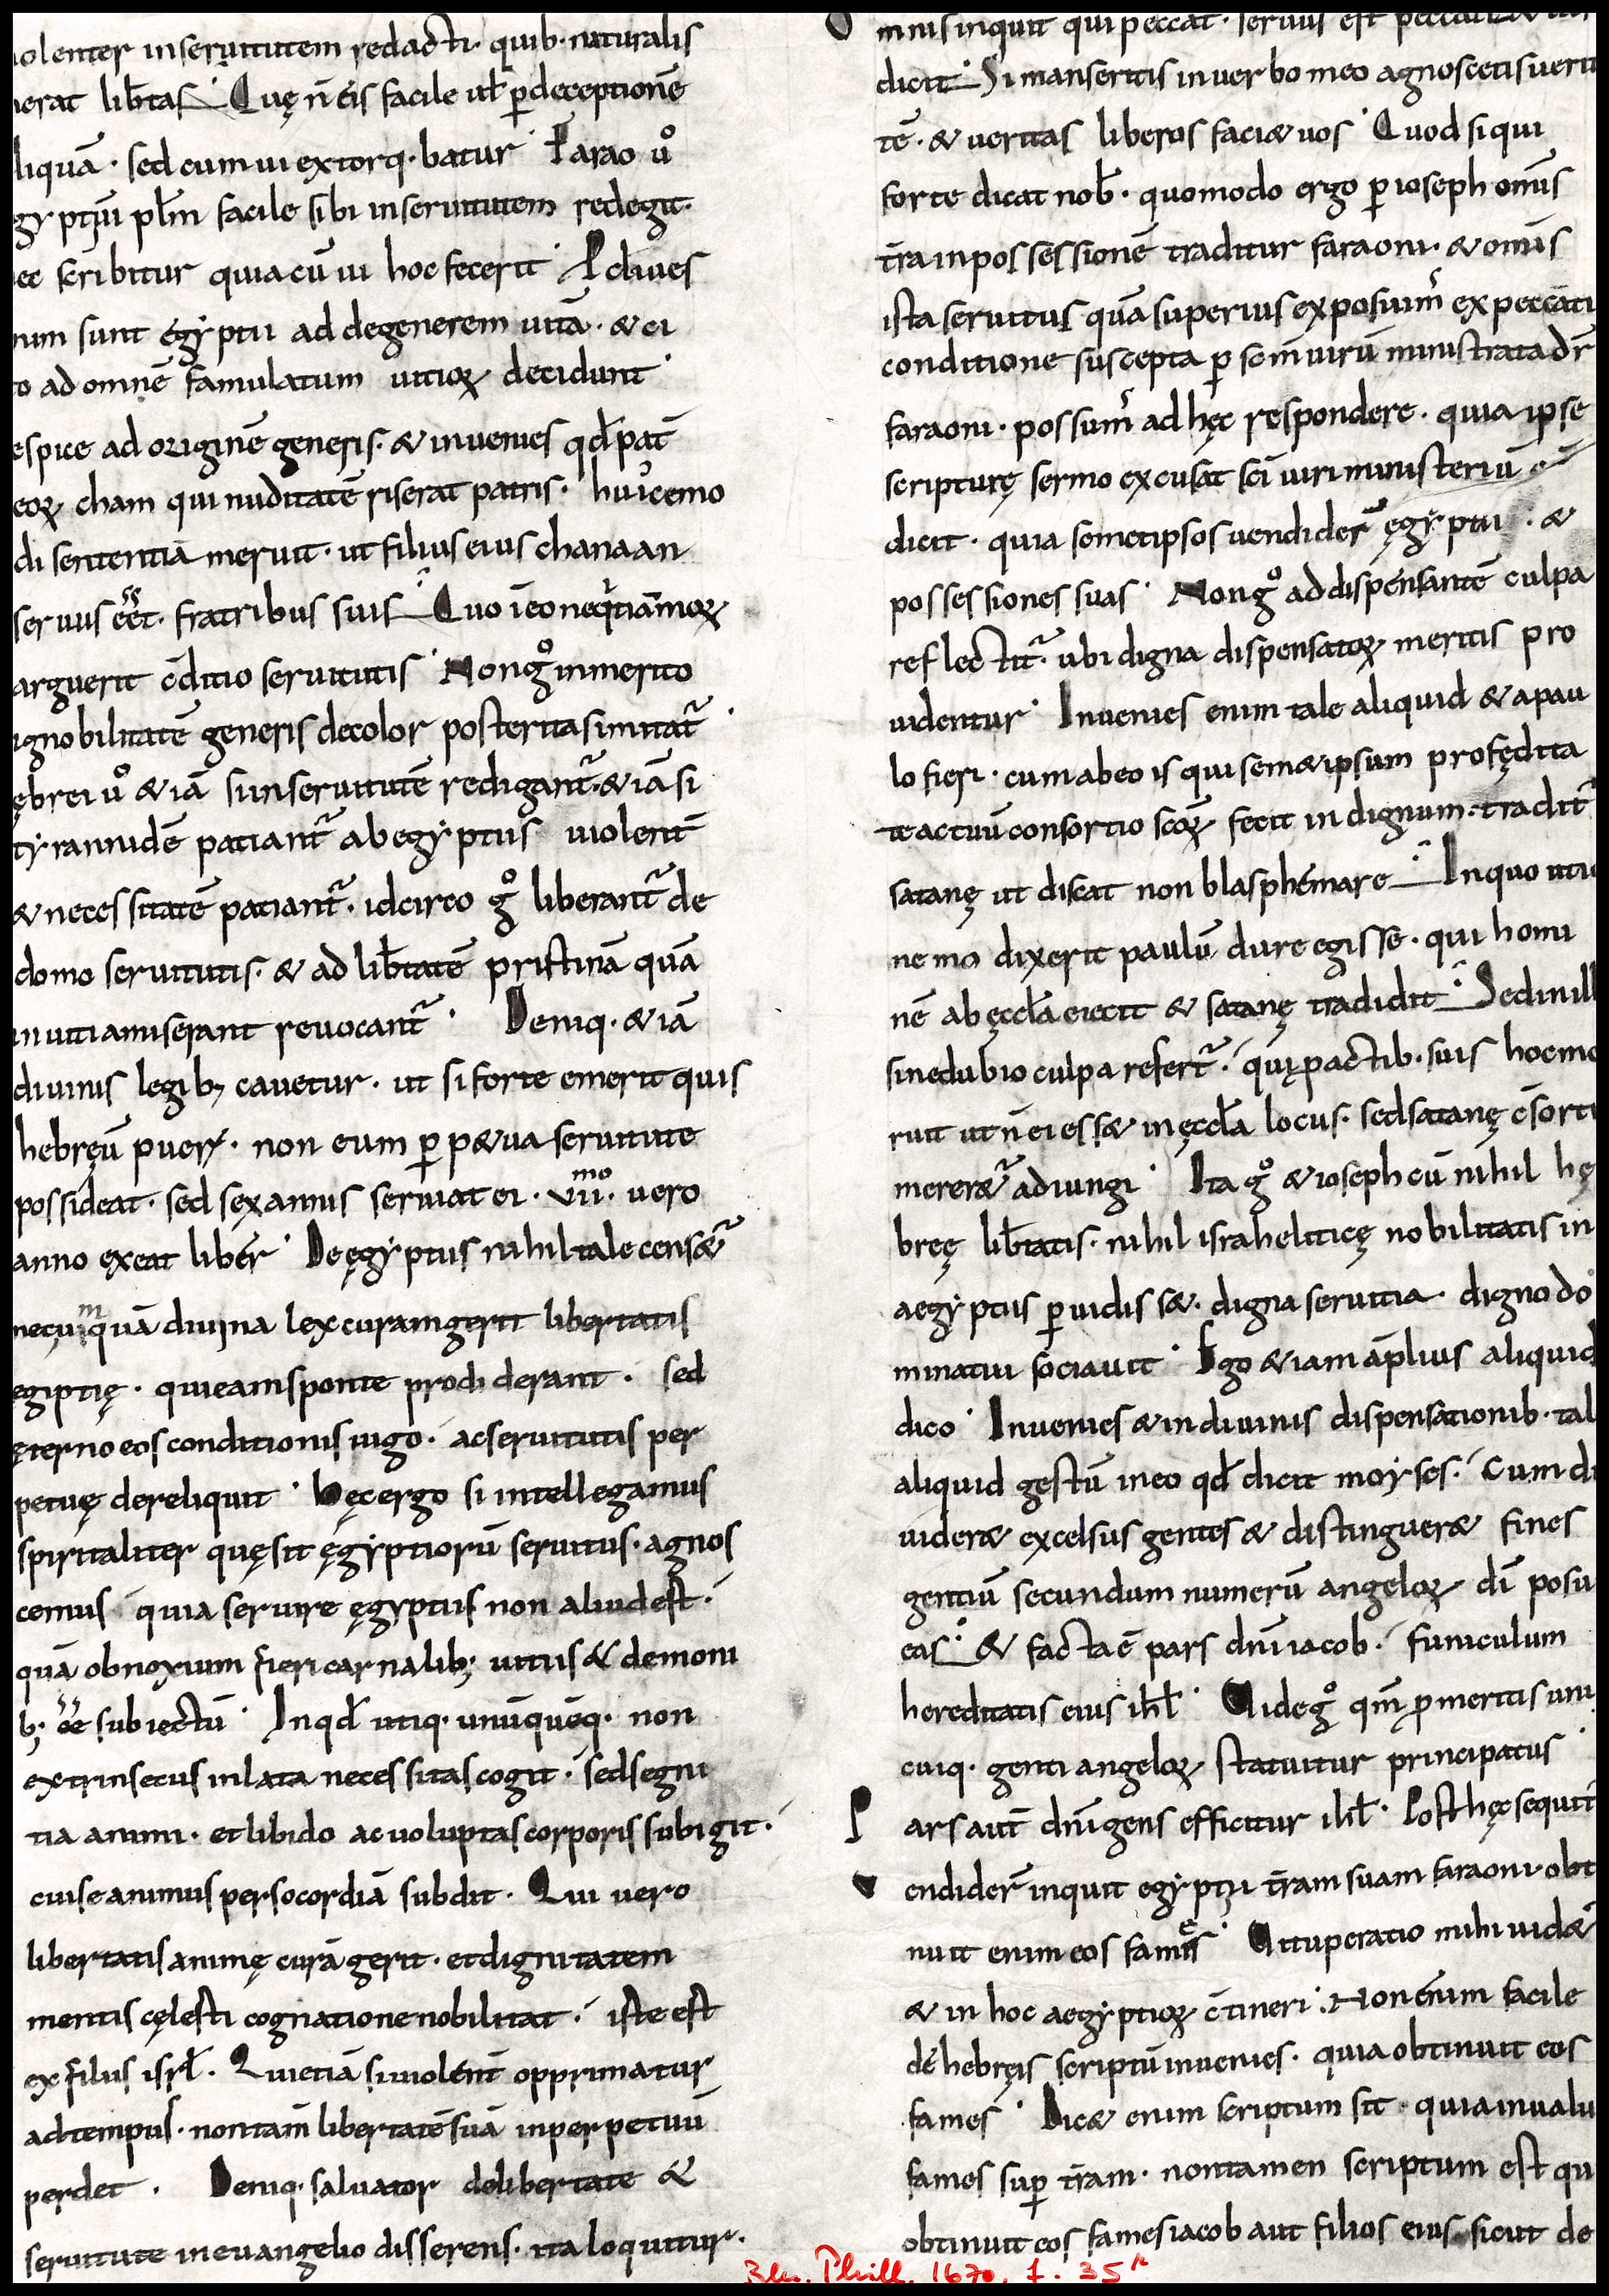 olenter inseruitutem redacti· quib·naturalis
erat lib̄tas Quę n̄ eis facile ut̄ ꝑdeceptionē
liquā· sed eum ui extorq·batur Farao ů
gyptiū pl̄m facile sibi inseruitutem redegit·
ec scribitur quia cū ui hoc fecerit Ad iues
num sunt egyptii ad degenerem uitā· & ci
o ad omnē famulatum uitioꝝ decidunt
espice ad originē generis· & inuenies qd̄ pat̄
eoꝝ cham qui nuditatē riserat patris· huicemo
di sententiā meruit· ut filius eius chanaan
seruus eēt· fratribus suis Quo īeo neq̇tiā moꝝ
arguerit c̄ditio seruitutis Non g̊ inmerito
ignobilitatē generis decolor posteritas imitat᷑
ębrei ů &iā si inseruitutē redigant᷑·&iā si
tyrannidē patiant᷑ ab egyptiis uiolent̄
& necessitatē patiant᷑· idcirco g̊ liberant᷑ de
domo seruitutis· & ad lib̄tatē pristinā quā
inuiti amiserant reuocant᷑ Deniq·&iā
diuinis legibꝫ cauetur· ut si forte emerit quis
hebręū puer· non eum ꝑp&ua seruitute
possideat· sed sex annis seruiat ei· vii·mo uero
anno exeat liber De ęgyptiis nihil tale cens&᷑
necuimquā diuina lex curam gerit libertatis
egiptię· qui eam sponte prodiderant· sed
ęterno eos conditionis iugo· ac seruitutis per
petuę dereliquit Hęc ergo si intellegamus
spiritaliter quę sit ęgyptiorū seruitus· agnos
cemus quia seruire ęgyptiis non aliud est·
quā obnoxium fieri carnalibꝫ uitiis & demoni
bꝫ ēe subiectū In qd̄ utiq· unūquēq· non
extrinsecus inlata necessitas cogit· sed segni
tia animi· et libido ac uoluptas corporis subigit·
cui se animus per socordiā subdit· Qui uero
libertatis animę curā gerit· et dignitatem
mentis cęlesti cognatione nobilitat· iste est
ex filiis isrl̄· Qui etiā si uiolent̄ opprimatur
ad tempus· non tam̄ libertatē suā inperpetuū
perdet· Deniq· saluator de libertate &
seruitute in euangelio disserens· ita loquitur·
Omnis inquit qui peccat· seruus est
dicit Si manseritis in uerbo meo agnoscetis uerit
tē· & ueritas liberos faci& uos Quod si qui
forte dicat nob̄· quomodo ergo ꝑ ioseph omīs
t̄ra in possessionē traditur faraoni· & omīs
ista seruitus quā superius exposuim᷒ ex peccati
conditione suscepta ꝑ sc̄m uirū ministrata dr̄
faraoni· possum᷒ ad hęc respondere· quia ipse
scripturę sermo excusat sc̄i uiri ministeriū
dicit· quia semetipsos uendider̄ ęgyptii· &
possessiones suas Non g̊ ad dispensantē culpa
reflectit᷑· ubi digna dispensatoꝝ meritis pro
uidentur Inuenies enim tale aliquid & a pau
lo fieri· cum ab eo is qui sem&ipsum pro fędita
te actuū consortio sc̄oꝝ fecit indignum· tradit᷑
satanę ut discat non blasphemare In quo uti
nemo dixerit paulū dure egisse· qui homi
nē ab ęccl̄a eiecit & satanę tradidit Sed in ill
sine dubio culpa refert᷑· qui ꝑ actib·suis hoc me
ruit ut n̄ ei ess& in ęccl̄a locus· sed satanę c̄sorti
merer&᷑ adiungi Ita g̊ & ioseph cū nihil hę
breę lib̄tatis· nihil israheliticę nobilitatis in
aegyptiis ꝑuidiss&· digna seruitia· digno do
minatui sociauit Ego &iam āplius aliquid
dico Inuenies & in diuinis dispensationib·tal
aliquid gestū in eo qd̄ dicit moyses· Cum di
uider& excelsus gentes & distinguer& fines
gentiū secundum numerū angeloꝝ dī posu
eas & facta ē pars dn̄i iacob· funiculum
hereditatis eius ihl̄ Uide g̊ qm̄ ꝓ meritis uni
cuiq· genti angeloꝝ statuitur principatus
Pars aut̄ dn̄i gens efficitur ihl̄· Post hęc sequit᷑
uendider̄ inquit egyptii t̄ram suam faraoni· obt
nuit enim eos fames Uituperatio mihi uid&᷑
& in hoc aegyptioꝝ c̄tineri· Non enim facile
de hebręis scriptū inuenies· quia obtinuit eos
fames Dic& enim scriptum sit· quia inualu
fames suꝑ t̄ram· non tamen scriptum est qu
obtinuit eos fames iacob aut filios eius sicut de
Bln. Phill. 1670, f. 35r